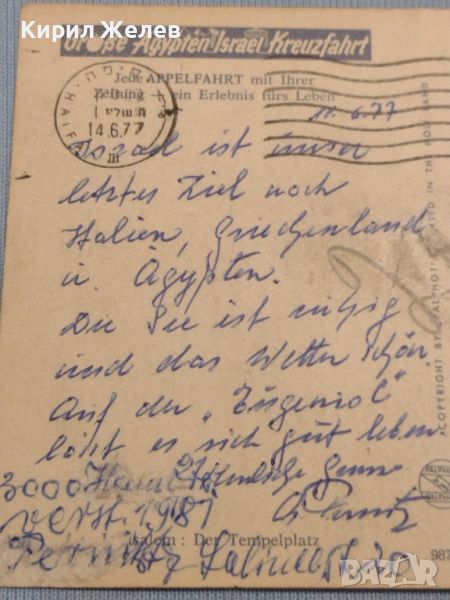 Кирил Желев
Große Ägypten Israel Kreuzfahrt
Jede APPELFAHRT mit Ihrer
Zeitung ein Erlebnis fürs Leben
HAIFA
14.6.77
11.6.77
Israel ist unser
letztes Ziel nach
Italien, Griechenland
u. Ägypten.
Die See ist ruhig
und das Wetter schön
Auf der „Eugenio C"
lässt es sich gut leben
3000
verst. 1981
salem: Der Tempelplatz
Pernitz
COPYRIGHT BY PALPHOT
IN THE HOLY LAND
987
BAZAR